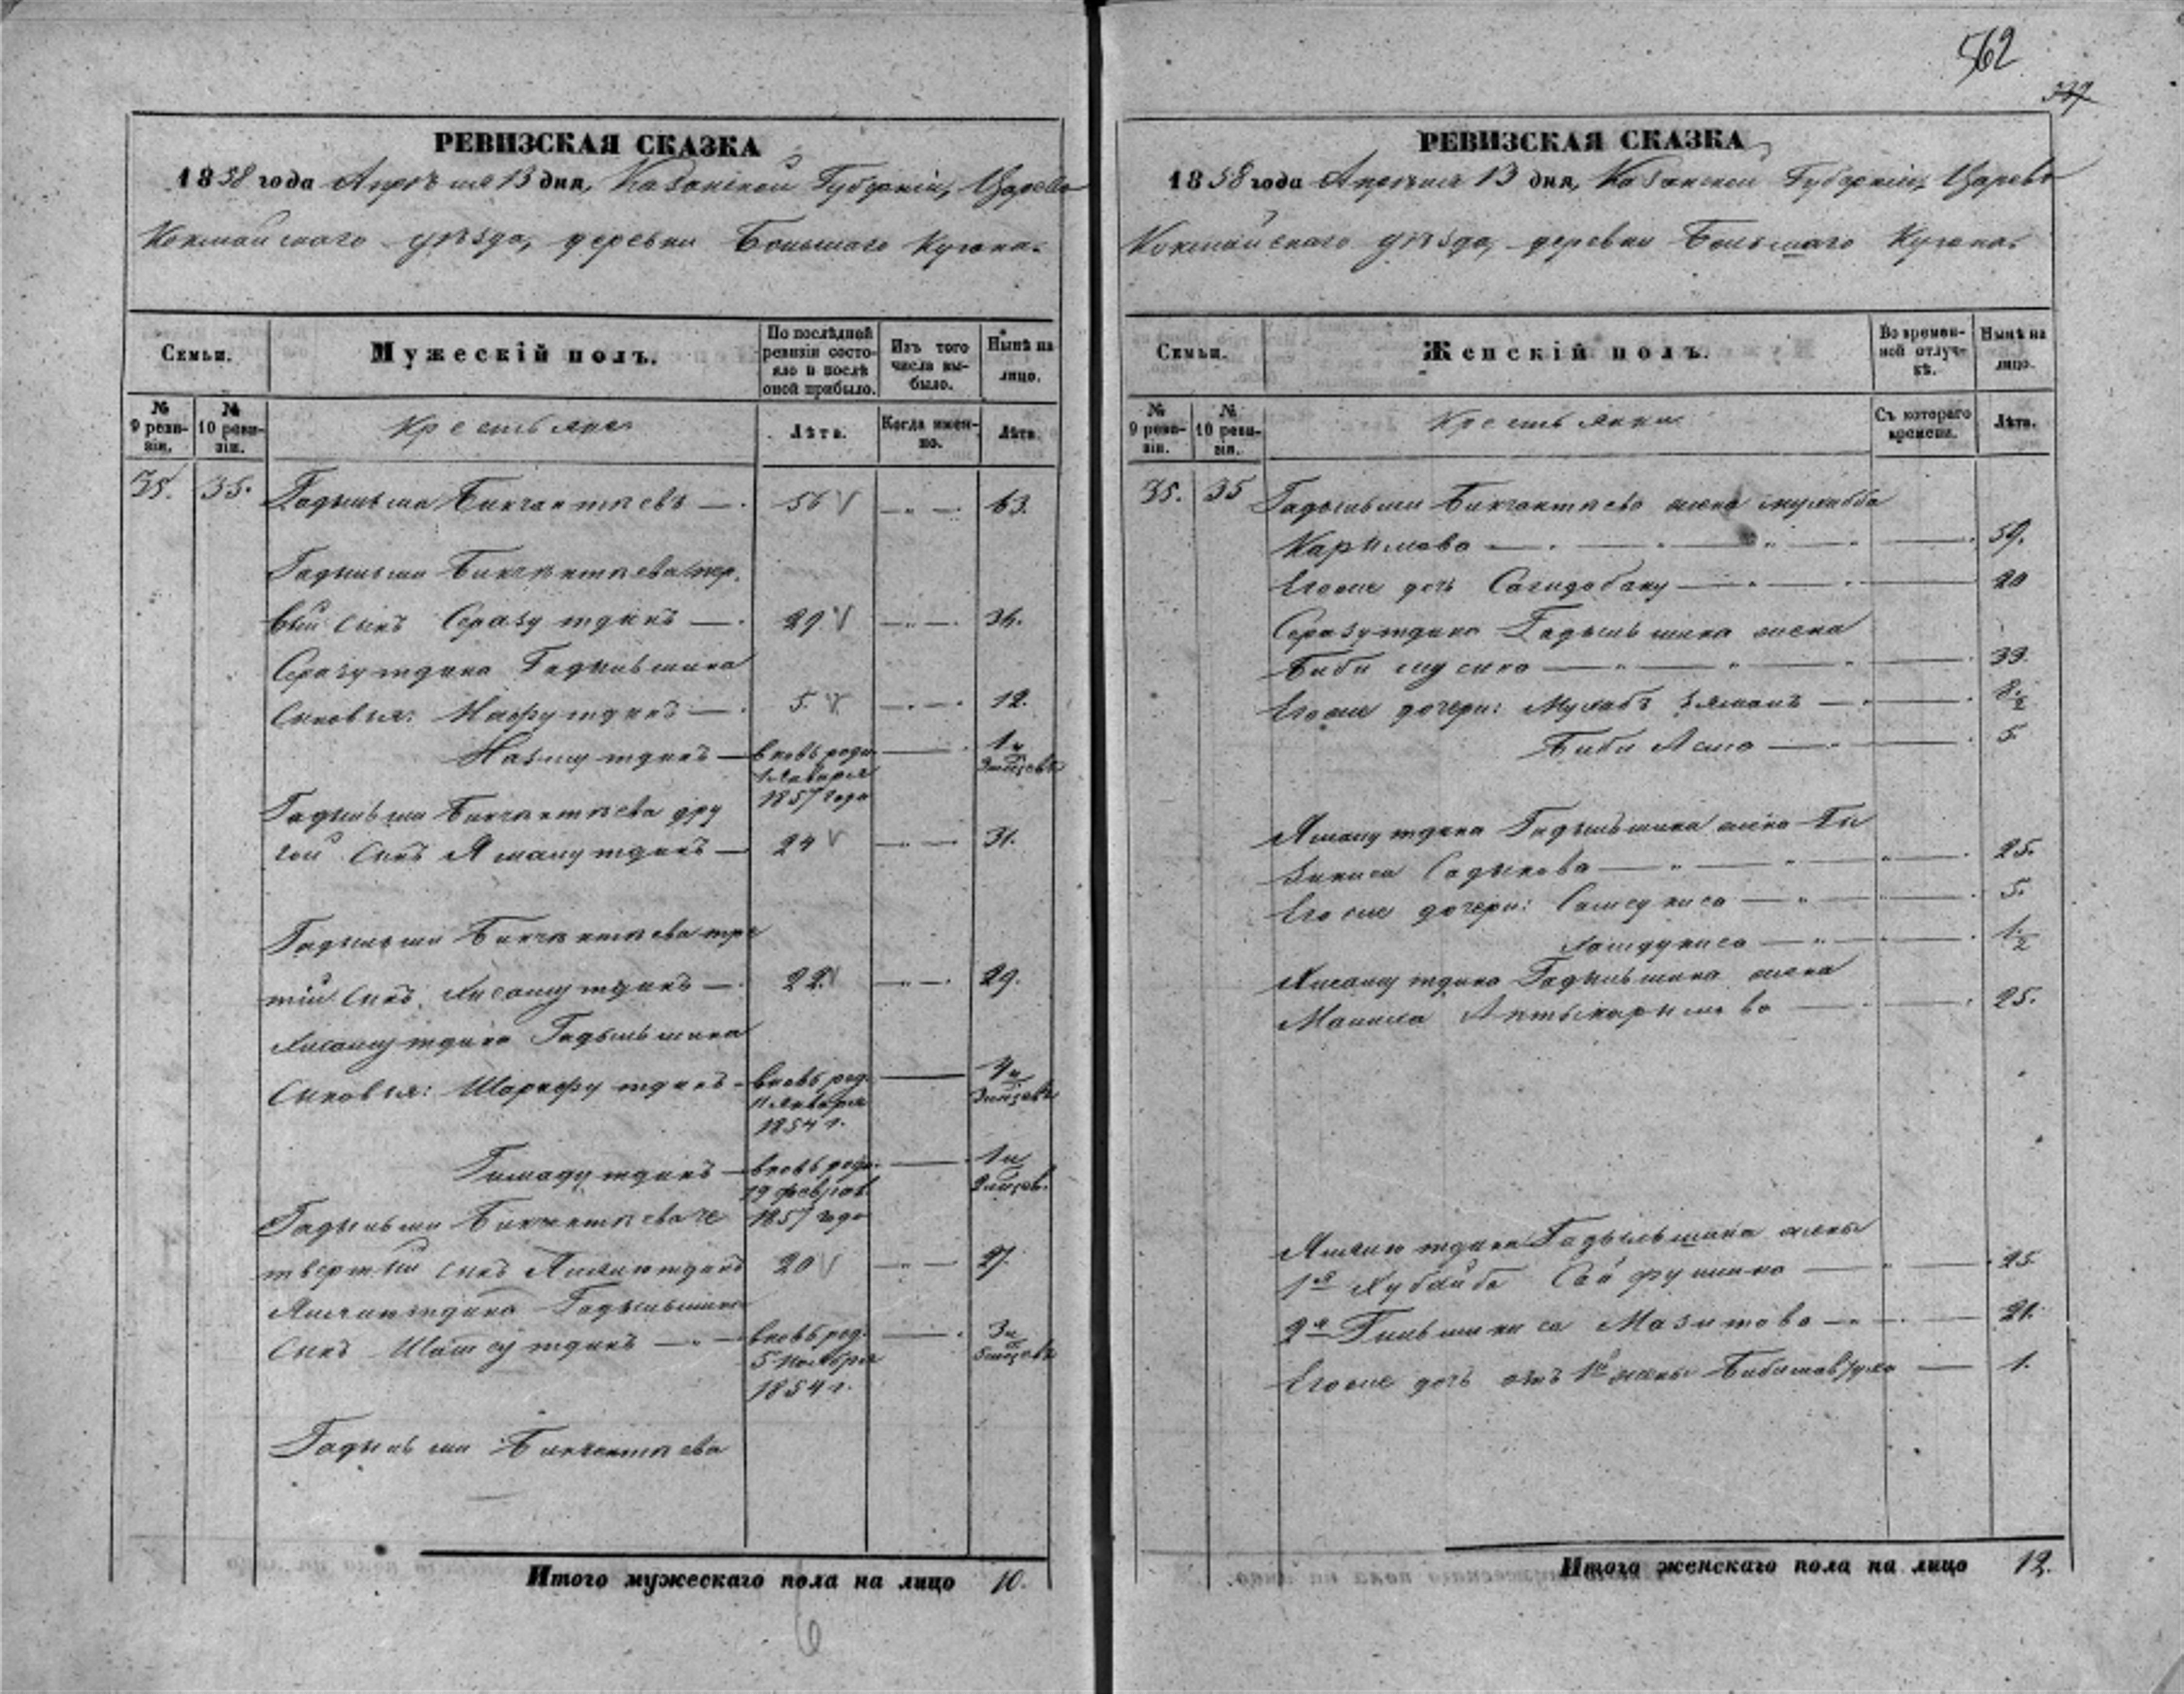 562
339
РЕВИЗСКАЯ СКАЗКА
1858 года Апрѣля 13 дня, Казанской Губерніи, Царево
Кокшайскаго уѣзда, деревни Большаго Кугюна.
Семьи.
Мужескій полъ.
По послѣдней ревизіи состояло и послѣ оной прибыло.
Изъ того числа выбыло.
Нынѣ на лицо.
№ 9 ревизіи.
№ 10 ревизіи.
Крестьяне
Лѣта.
Когда именно.
Лѣта.
35. 35. Гадыльша Бикчантаевъ — 56 — „ — 63.
Гадыльши Бикчантаева пер.
вый сынъ Серазутдинъ — 29 — „ — 36.
Серазутдина Гадыльшина
Сыновья: Насрутдинъ — 5. — „ — 12.
Назмутдинъ — вновь роди. 1 и
1 Января 3 мѣсяцевъ
1857 года
Гадыльши Бикчантаева дру
гой сынъ Ямалутдинъ — 24 — „ — 31.
Гадыльши Бикчантаева тре
тій сынъ Хисамутдинъ — 22. — „ — 29.
Хисамутдина Гадыльшина
Сыновья: Шарафутдинъ - вновь род. 4 и
11 Января 3 мѣсяцевъ
1854 г.
Гимадутдинъ — вновь роди. 1 и
19 Феврал. 2 мѣсяц.
Гадыльши Бикчантаева че 1857 года
твертый сынъ Амлиютдинъ 20 — „ — 27.
Амлиютдина Гадыльшина
сынъ Шамсутдинъ — „ — вновь род. 3 и
5 Ноября 5 мѣсяцевъ
1854 г.
Гадыльши Бикчантаева
Итого мужескаго пола на лицо 10.
6
РЕВИЗСКАЯ СКАЗКА
1858 года Апрѣля 13 дня, Казанской Губерніи, Царево
Кокшайскаго уѣзда, деревни Большаго Кугюна.
Семьи.
Женскій полъ.
Во временной отлучкѣ.
Нынѣ на лицо.
№ 9 ревизіи.
№ 10 ревизіи.
Крестьянки
Съ котораго времени.
Лѣта.
35. 35 Гадыльши Бикчантаева жена
Каримова — 59.
Егоже дочь Сагидабану — 20
Серазутдина Гадыльшина жена
Биби — 33.
Егоже дочери: — 8 ½
Биби Асма — 5.
Ямалутдина Гадыльшина жена Ги
Садыкова — 25.
Егоже дочери: Самсуниса — 5.
Хамдуниса — 1 ½
Хисамутдина Гадыльшина жена
25.
Амлиютдина Гадыльшина жены
1я Хубайба Сайфуллина — 25.
2я Гильминиса Мазитова — 21.
Егоже дочь отъ 1й жены — 1.
Итого женскаго пола на лицо 12.